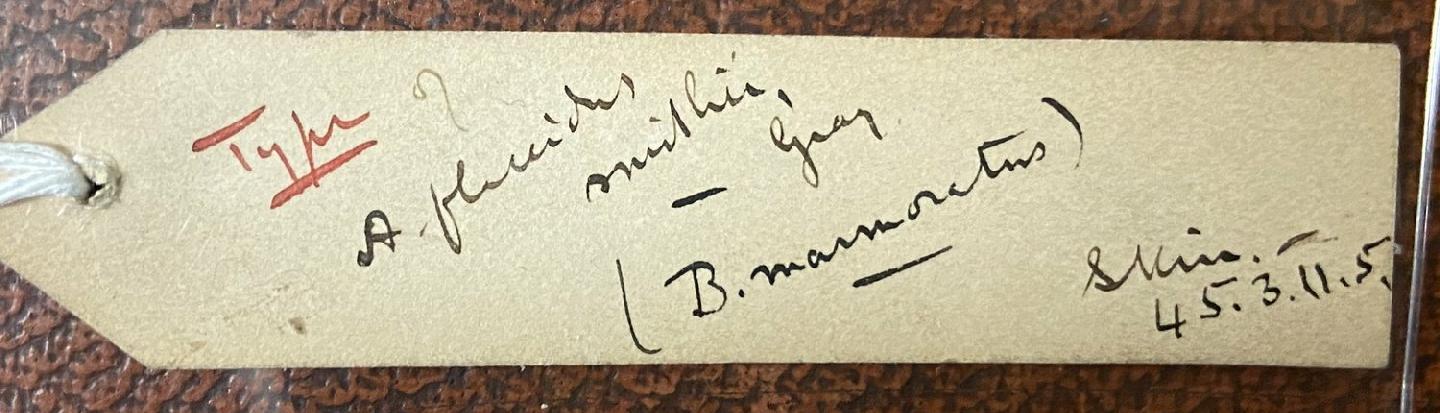 Type ?
A. placidus
smithii,
— Gray.
(B. marmoratus)
Skin. —
45.3.11.5.